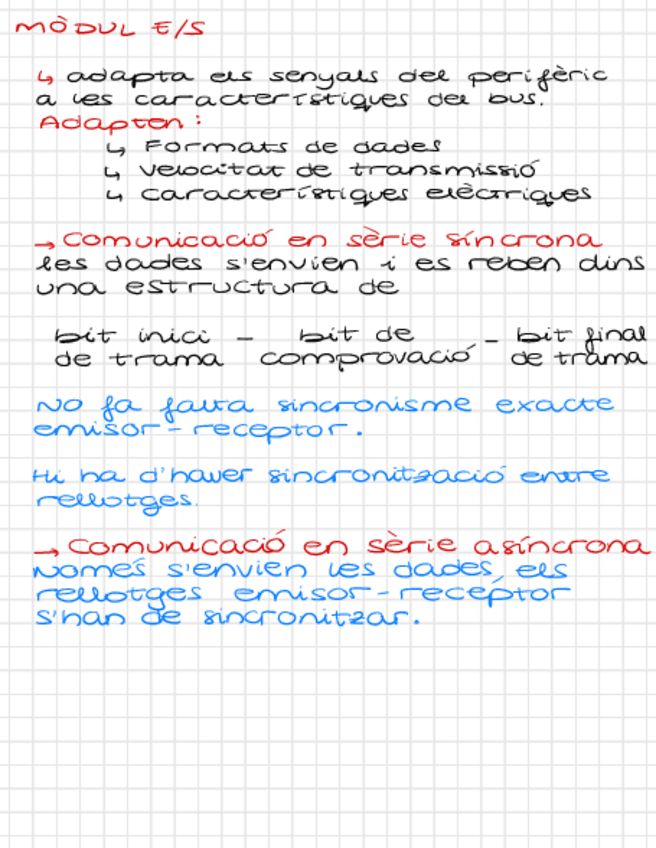 MÒDUL E/S
↳ adapta els senyals del perifèric
a les característiques del bus.
Adapten:
↳ Formats de dades
↳ velocitat de transmissió
↳ característiques elèctriques
→ Comunicació en sèrie síncrona
les dades s'envien i es reben dins
una estructura de
bit inici - bit de - bit final
de trama comprovació de trama
No fa falta sincronisme exacte
emisor-receptor.
Hi ha d'haver sincronització entre
rellotges.
→ Comunicació en sèrie asíncrona
Només s'envien les dades, els
rellotges emisor-receptor
s'han de sincronitzar.